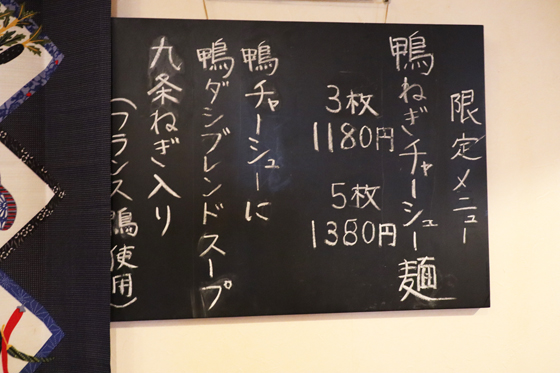 限定メニュー
鴨ねぎチャーシュー麺
3枚
1180円
5枚
1380円
鴨チャーシューに
鴨ダシブレンドスープ
九条ねぎ入り
(フランス鴨使用)